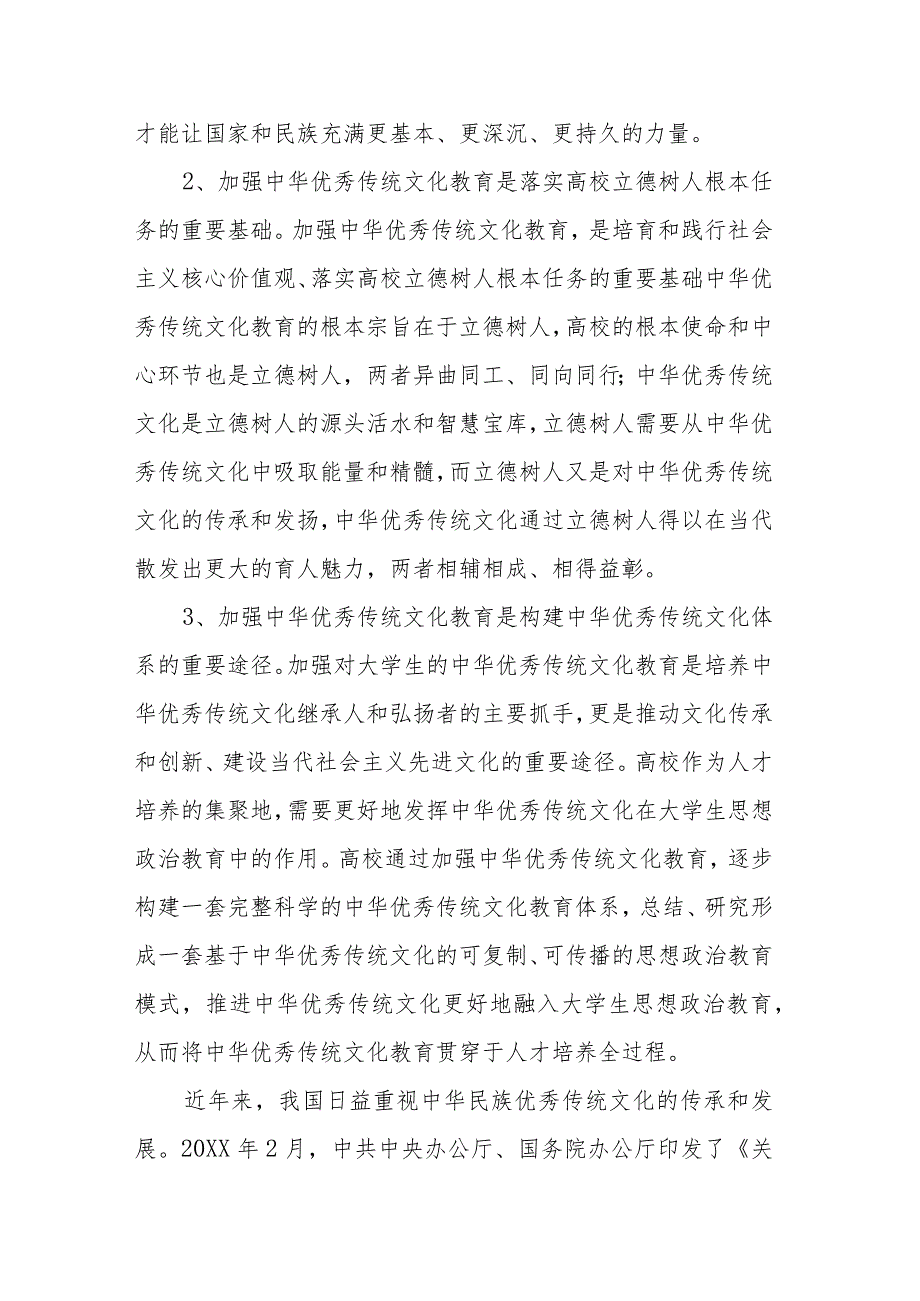 才能让国家和民族充满更基本、更深沉、更持久的力量。
2、加强中华优秀传统文化教育是落实高校立德树人根本任
务的重要基础。加强中华优秀传统文化教育，是培育和践行社会
主义核心价值观、落实高校立德树人根本任务的重要基础中华优
秀传统文化教育的根本宗旨在于立德树人，高校的根本使命和中
心环节也是立德树人，两者异曲同工、同向同行；中华优秀传统
文化是立德树人的源头活水和智慧宝库，立德树人需要从中华优
秀传统文化中吸取能量和精髓，而立德树人又是对中华优秀传统
文化的传承和发扬，中华优秀传统文化通过立德树人得以在当代
散发出更大的育人魅力，两者相辅相成、相得益彰。
3、加强中华优秀传统文化教育是构建中华优秀传统文化体
系的重要途径。加强对大学生的中华优秀传统文化教育是培养中
华优秀传统文化继承人和弘扬者的主要抓手，更是推动文化传承
和创新、建设当代社会主义先进文化的重要途径。高校作为人才
培养的集聚地，需要更好地发挥中华优秀传统文化在大学生思想
政治教育中的作用。高校通过加强中华优秀传统文化教育，逐步
构建一套完整科学的中华优秀传统文化教育体系，总结、研究形
成一套基于中华优秀传统文化的可复制、可传播的思想政治教育
模式，推进中华优秀传统文化更好地融入大学生思想政治教育，
从而将中华优秀传统文化教育贯穿于人才培养全过程。
近年来，我国日益重视中华民族优秀传统文化的传承和发
展。20XX 年 2 月，中共中央办公厅、国务院办公厅印发了《关